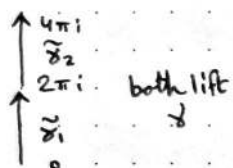 4πi
γ̃₂
2πi both lift
γ̃₁ γ